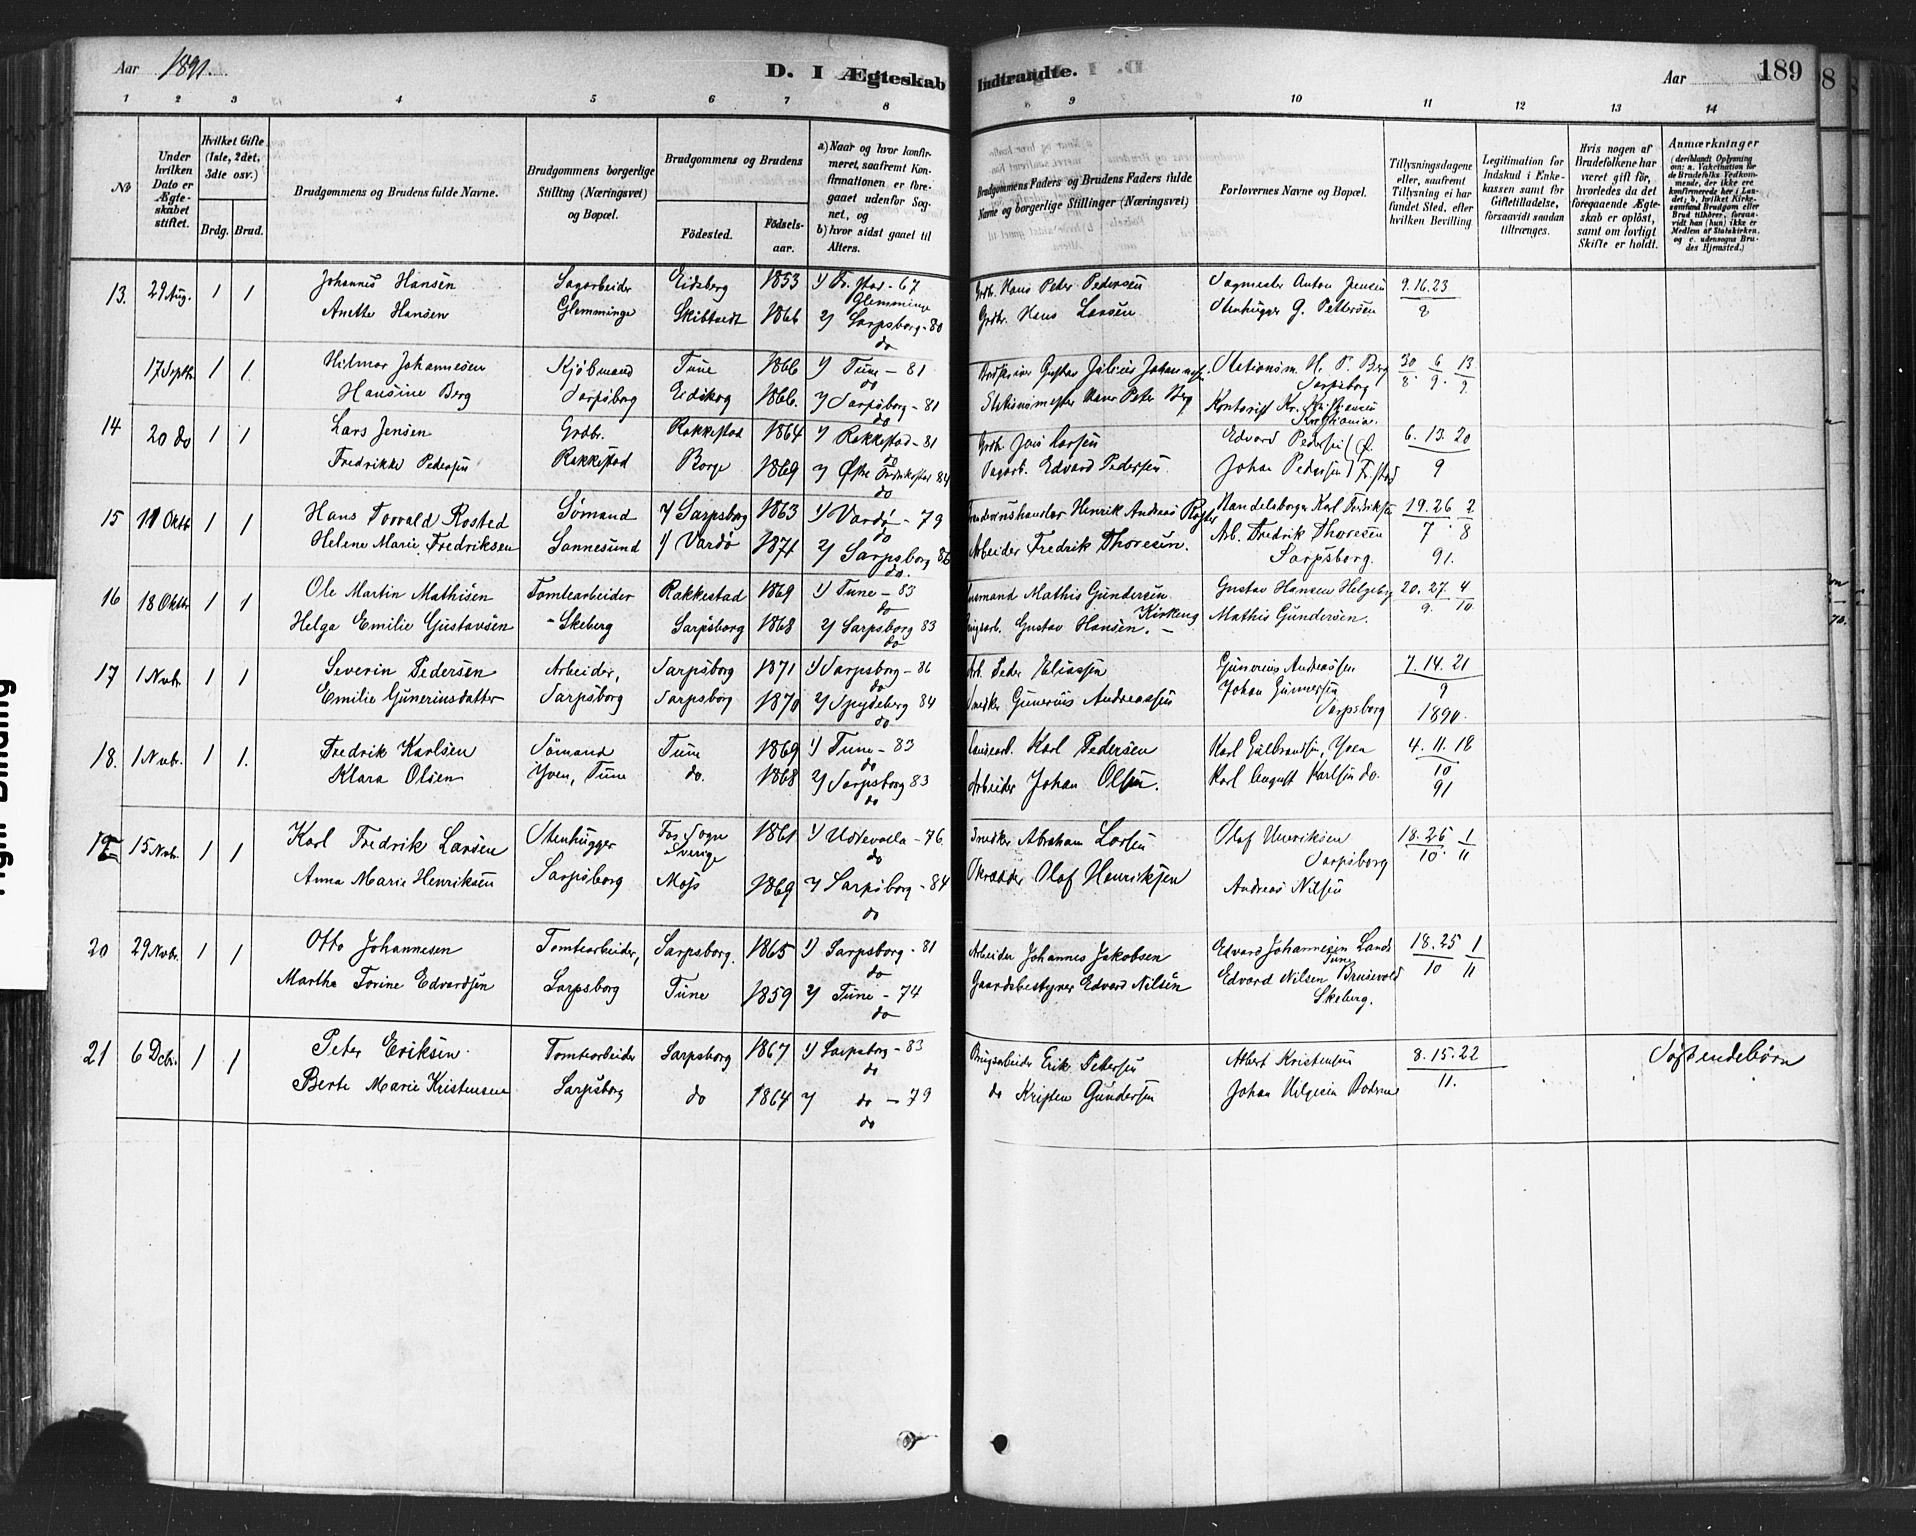 Aar 1891.
D. I Ægteskab Indtraadte.
Aar 189
1 2 3 4 5 6 7 8 9 10 11 12 13 14
No
Under hvilken Dato er Ægteskabet stiftet.
Hvilket Gifte (1ste, 2det, 3die osv.)
Brdg. Brud.
Brudgommens og Brudens fulde Navne.
Brudgommens borgerlige Stilling (Næringsvei) og Bopæl.
Brudgommens og Brudens
Födested. Födsels-aar.
a) Naar og hvor konfirmeret, saafremt Konfirmationen er foregaaet udenfor Sognet, og
b) hvor sidst gaaet til Alters.
Brudgommens Faders og Brudens Faders fulde Navne og borgerlige Stillinger (Næringsvei)
Forlovernes Navne og Bopæl.
Tillysningsdagene eller, saafremt Tillysning ei har fundet Sted, efter hvilken Bevilling
Legitimation for Indskud i Enkekassen samt for Giftetilladelse, forsaavidt saadan tiltrænges.
Hvis nogen af Brudefolkene har været gift för, hvorledes da det foregaaende Ægteskab er oplöst, samt om lovligt Skifte er holdt.
Anmærkninger
13. 29 Aug. 1 1 Johannes Hansen Sagarbeider Eidsberg 1853 1) Fr.stad - 67 Glemminge Grdbr. Hans Peter Pedersen Sagmester Anton Jensen 9. 16. 23
Anette Hansen Glemminge Skibtvedt 1866 2) Sarpsborg - 80 do Grdbr. Hans Larsen Stenhugger G. Pettersen 8
17 Septbr. 1 1 Hilmar Johannesen Kjøbmand Tune 1866 1) Tune - 81 do Gustav Julius Johannesen Stationsm. H. P. Berg Sarpsborg 30/8. 6/9. 13/9.
Hansine Berg Sarpsborg Eidskog 1866. 2) Sarpsborg - 81 do Stationsmester Hans Peter Berg Kontorist Kr. Kristiania.
14 20 do 1 1 Lars Jensen Grdbr. Rakkestad 1864 1) Rakkestad - 81 do Grdbr. Jens Larsen Edvard Pedersen 6. 13. 20
Fredrikke Pedersen Rakkestad Borge 1869 2) Østre Fredrikstad 84 do Sagarb. Edvard Pedersen. Johan Pedersen F.stad 9
15 11 Oktbr 1 1 Hans Torvald Rosted Sømand 2) Sarpsborg 1863 1) Vardø - 79 do Henrik Andreas Handelsborger Karl Fredriksen 19. 26 2
Helene Marie Fredriksen Sannesund 1) Vardø 1871 2) Sarpsborg 86 do. Arbeider Fredrik Thoresen. Arb. Fredrik Thoresen Sarpsborg. 7 8 91.
16 18 Oktbr 1 1 Ole Martin Mathisen Tomtearbeider Rakkestad 1869 1) Tune - 83 do Mathis Gundersen Gustav Hansen Helgeby 20. 27. 4
Helga Emilie Gustavsen - Skeberg Sarpsborg 1868 2) Sarpsborg 83 do Gustav Hansen. Kirkeng Mathis Gundersen. 9. 10.
17 1 Novbr. 1 1 Severin Pedersen Arbeider, Sarpsborg 1871 1) Sarpsborg - 86 do Arb. Peder Eliassen Gunerius Andreassen 7. 14. 21
Emilie Guneriusdatter Sarpsborg Sarpsborg 1870 2) Spydeberg 84 do Snedker Gunerius Andreassen Johan Gunnersen Sarpsborg 9 1890.
18. 1 Novbr. 1 1. Fredrik Karlsen Sømand Tune 1869 1) Tune - 83 do Karl Pedersen Karl Gulbrandsen, Yven 4. 11. 18
Klara Olsen Yven, Tune do. 1868 2) Sarpsborg 83 do Arbeider Johan Olsen. Karl August Karlsen do. 10 91
19 15 Novbr. 1 1 Karl Fredrik Larsen Stenhugger Fos Sogn Sverige 1861 1) Uddevalla - 76. do Snedker Abraham Larsen Olaf Henriksen Sarpsborg 18. 25 1
Anna Marie Henriksen Sarpsborg Moss 1869 2) Sarpsborg - 84 do Skrædder Olaf Henriksen Andreas Nilsen 10. 11
20 29 Novbr. 1 1 Otto Johannesen Tomtearbeider, Sarpsborg. 1865 1) Sarpsborg - 81 do Arbeider Johannes Jakobsen Edvard Johannesen Lande Tune 18. 25 1
Martha Torine Edvardsen Sarpsborg Tune 1859 2) Tune - 74 do Gaardsbestyrer Edvard Nilsen Edvard Nilsen Brusevold Skeberg. 10 11
21 6 Dcbr. 1 1 Peter Eriksen. Tomtearbeider Sarpsborg 1867 1) Sarpsborg - 83 do Brugsarbeider Erik Pettersen Albert Kristensen 8. 15. 22 Søskendebørn
Berte Marie Kristensen Sarpsborg do 1864 2) do - 79 do do Kristen Gundersen Johan Helgesen 11.